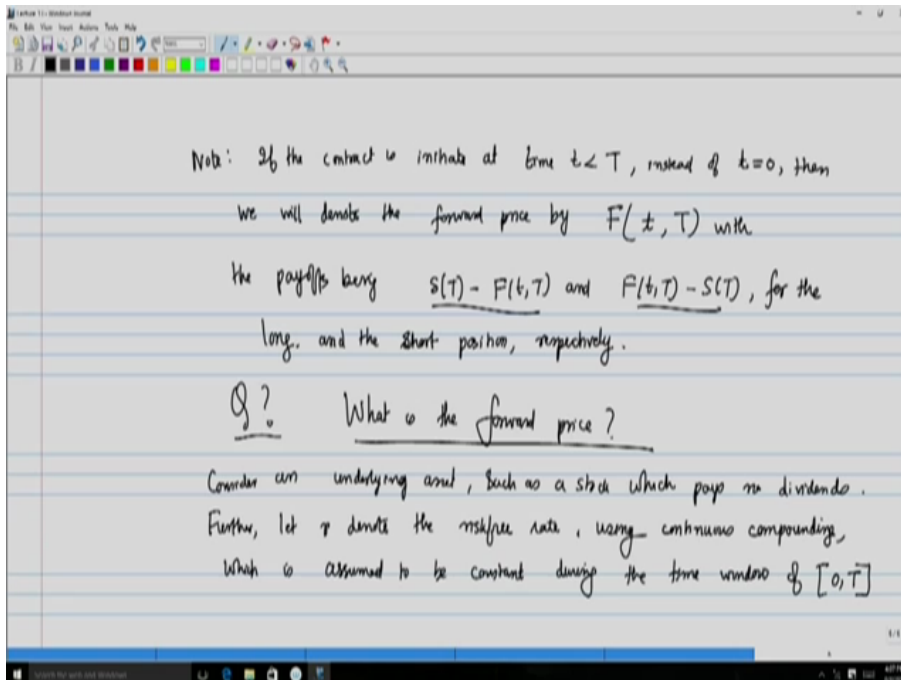 Lecture 13 - Windows Journal
File Edit View Insert Actions Tools Help
B I
Note: If the contract is initiate at time t < T, instead of t=0, then
we will denote the forward price by F(t, T) with
the payoffs being S(T) - F(t,T) and F(t,T) - S(T), for the
long. and the short position, respectively.
Q? What is the forward price?
Consider an underlying asset, such as a stock which pays no dividends.
Further, let r denote the riskfree rate, using continuous compounding,
which is assumed to be constant during the time window of [0,T]
Search the web and Windows